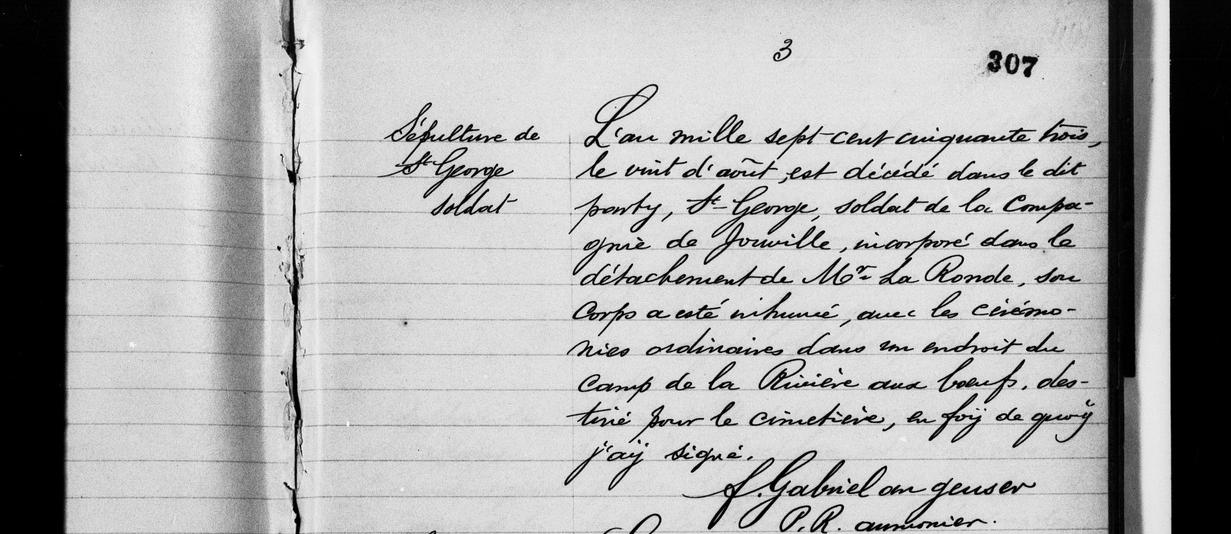 3
307
Sépulture de
St-George
soldat
L'an mille sept cent cinquante trois,
le vint d'août, est décédé dans le dit
party, St-George, soldat de la Compa-
gnie de Jonville, incorporé dans le
détachement de Mr. La Ronde, son
corps a esté inhumé, avec les cérémo-
nies ordinaires dans un endroit du
camp de la Rivière aux bœufs, des-
tiné pour le cimetière, en foÿ de quoÿ
j'aÿ signé.
f. Gabriel an geuser
P. R. aumonier.